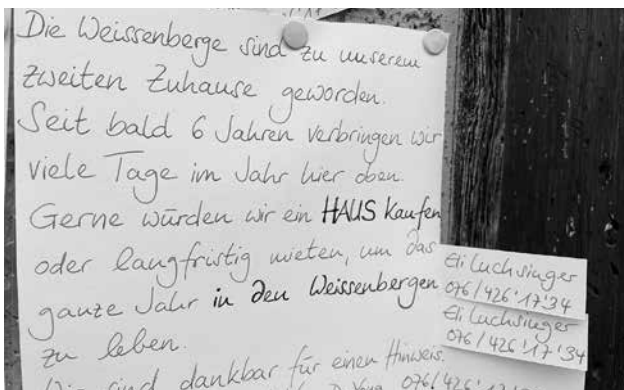 Die Weissenberge sind zu unserem
zweiten Zuhause geworden.
Seit bald 6 Jahren verbringen wir
viele Tage im Jahr hier oben.
Gerne würden wir ein HAUS kaufen
oder langfristig mieten, um das
ganze Jahr in den Weissenbergen
zu leben.
Wir sind dankbar für einen Hinweis.
Eli Luchsinger
076/426'17'34
Eli Luchsinger
076/426'17'34